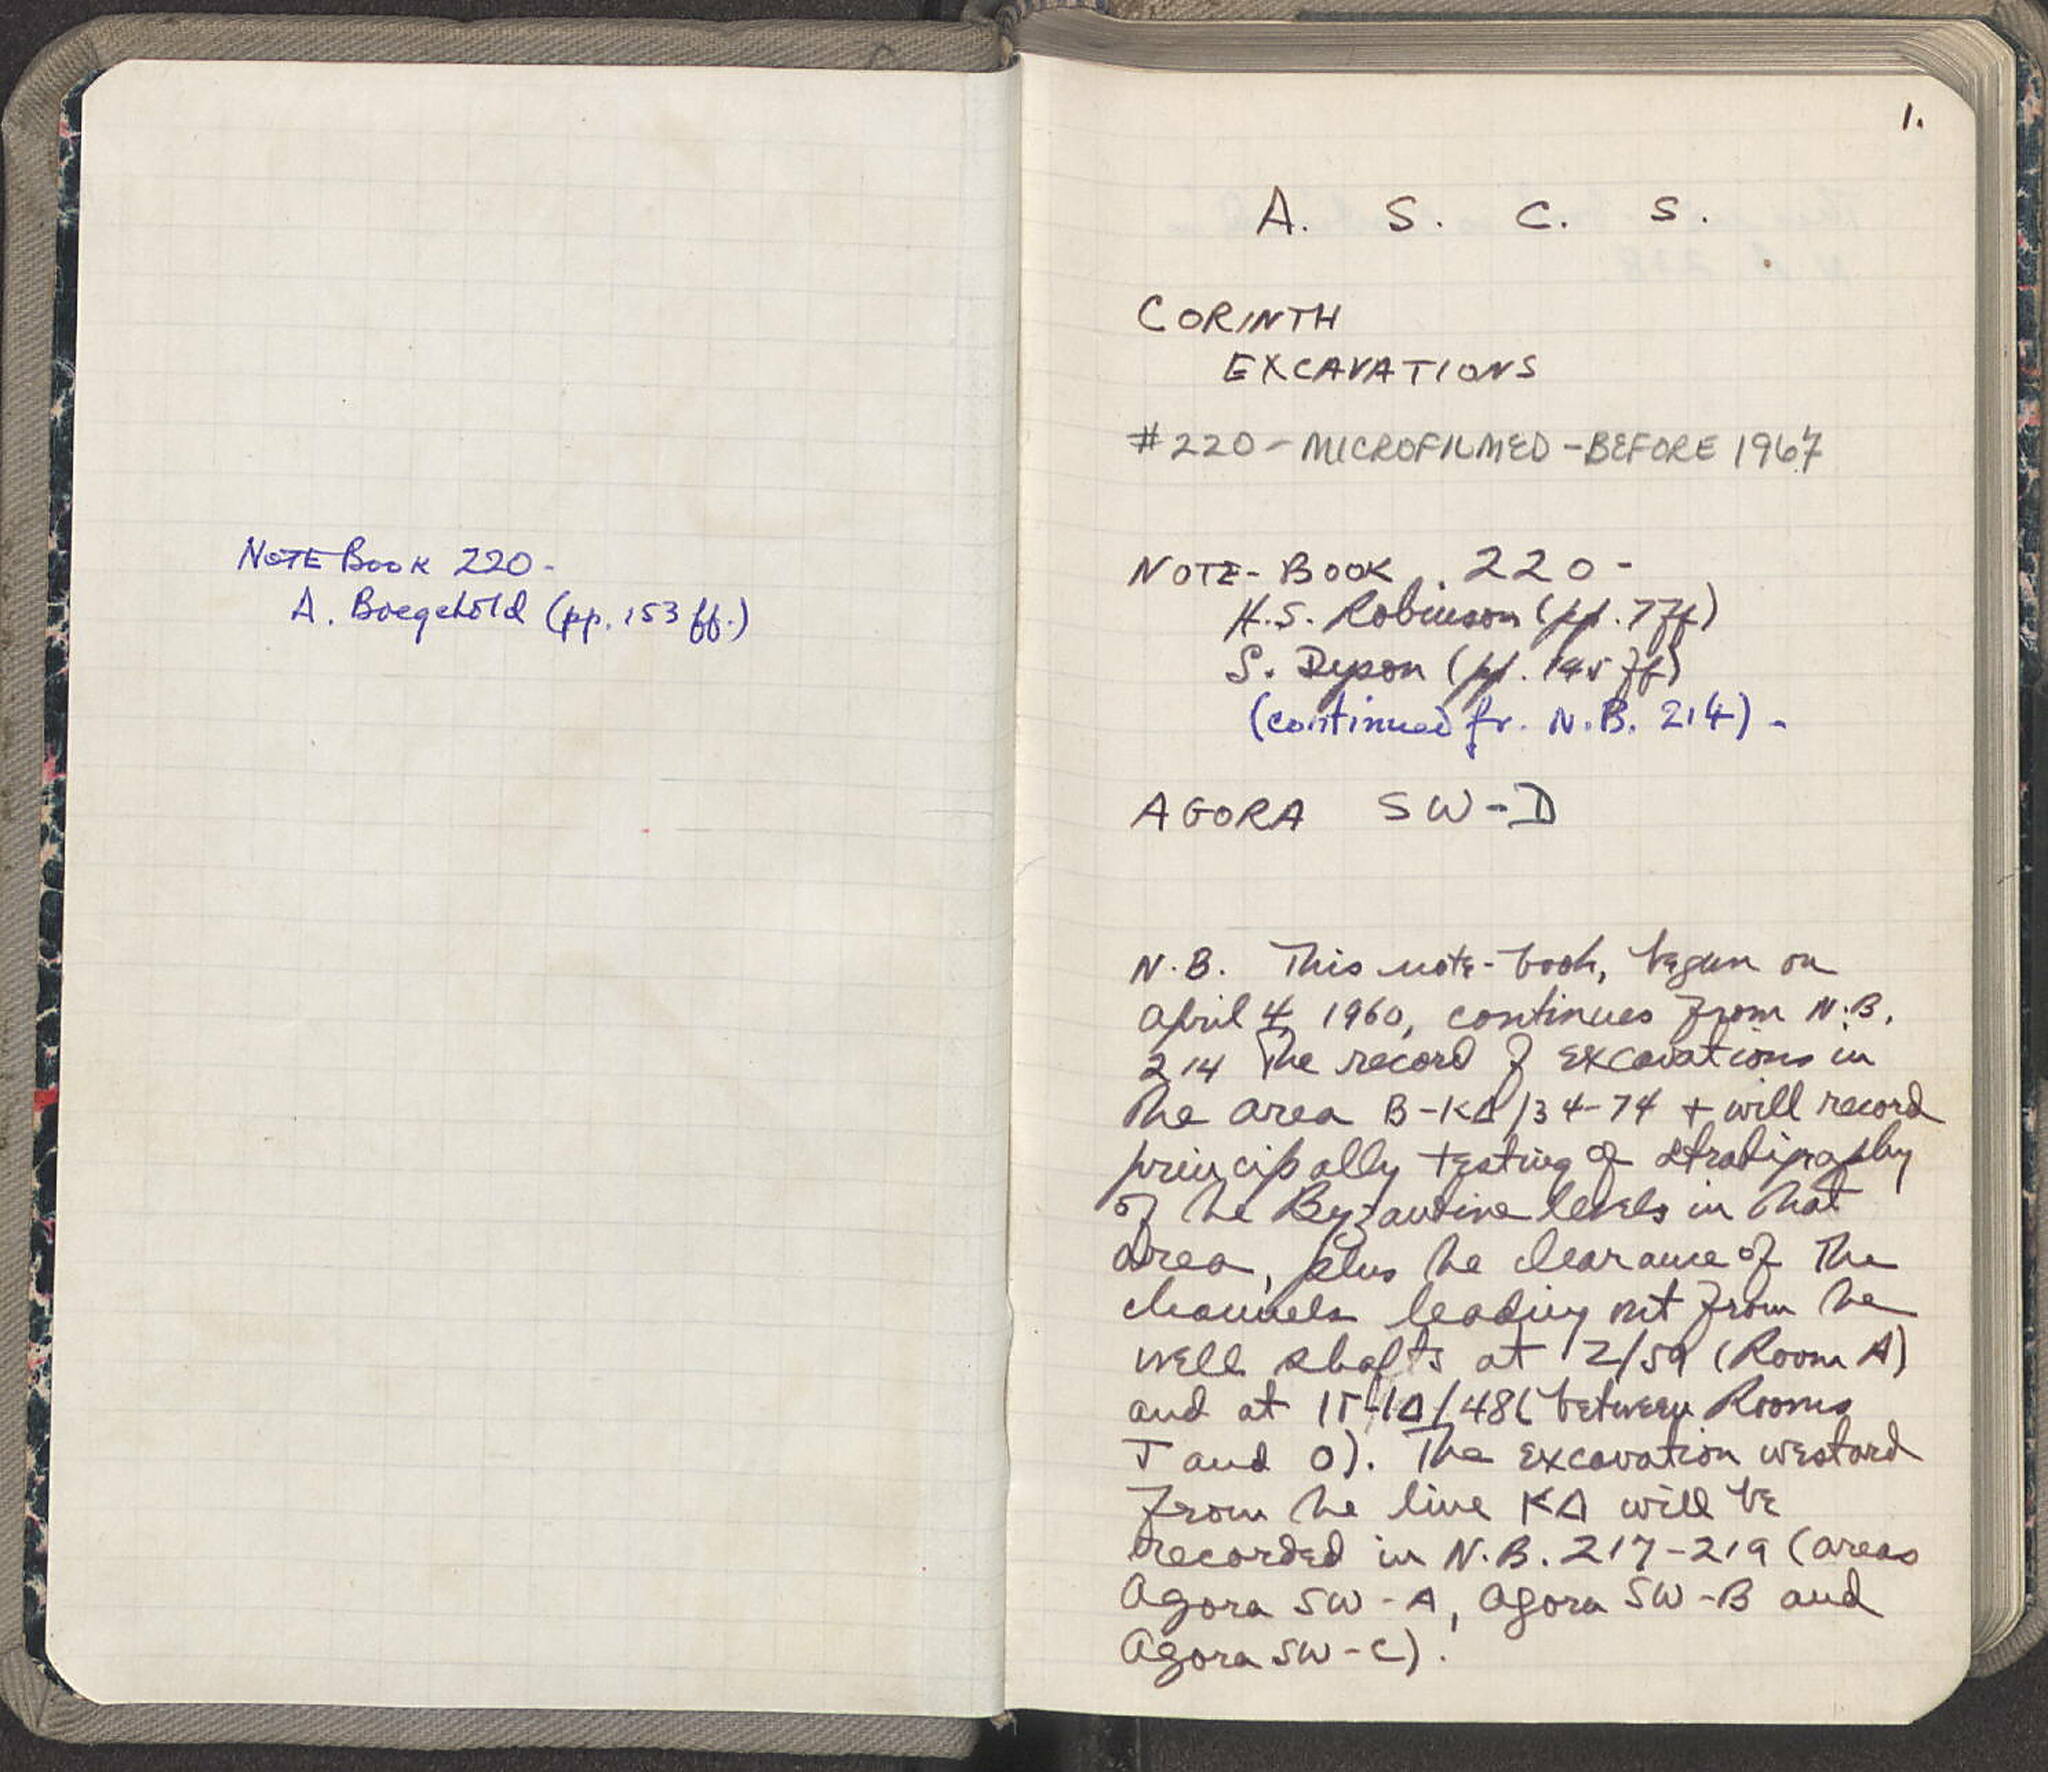 NOTE BOOK 220 -
A. Boegehold (pp. 153 ff.)
1.
A. S. C. S.
CORINTH
EXCAVATIONS
#220 - MICROFILMED - BEFORE 1967
NOTE-BOOK 220 -
H.S. Robinson (pp. 7 ff)
S. Dyson (pp. 145 ff)
(continued fr. N.B. 214) -
AGORA SW-D
N.B. This note-book, begun on
April 4, 1960, continues from N.B.
214 the record of excavations in
the area B-KΔ/34-74 + will record
principally testing of stratigraphy
of the Byzantine levels in that
area, plus the clearance of the
channels leading out from the
well shafts at IZ/59 (Room A)
and at IΓ-IΔ/48 (between Rooms
J and O). The excavation westard
from the line KΔ will be
recorded in N.B. 217-219 (areas
Agora SW-A, Agora SW-B and
Agora SW-C).